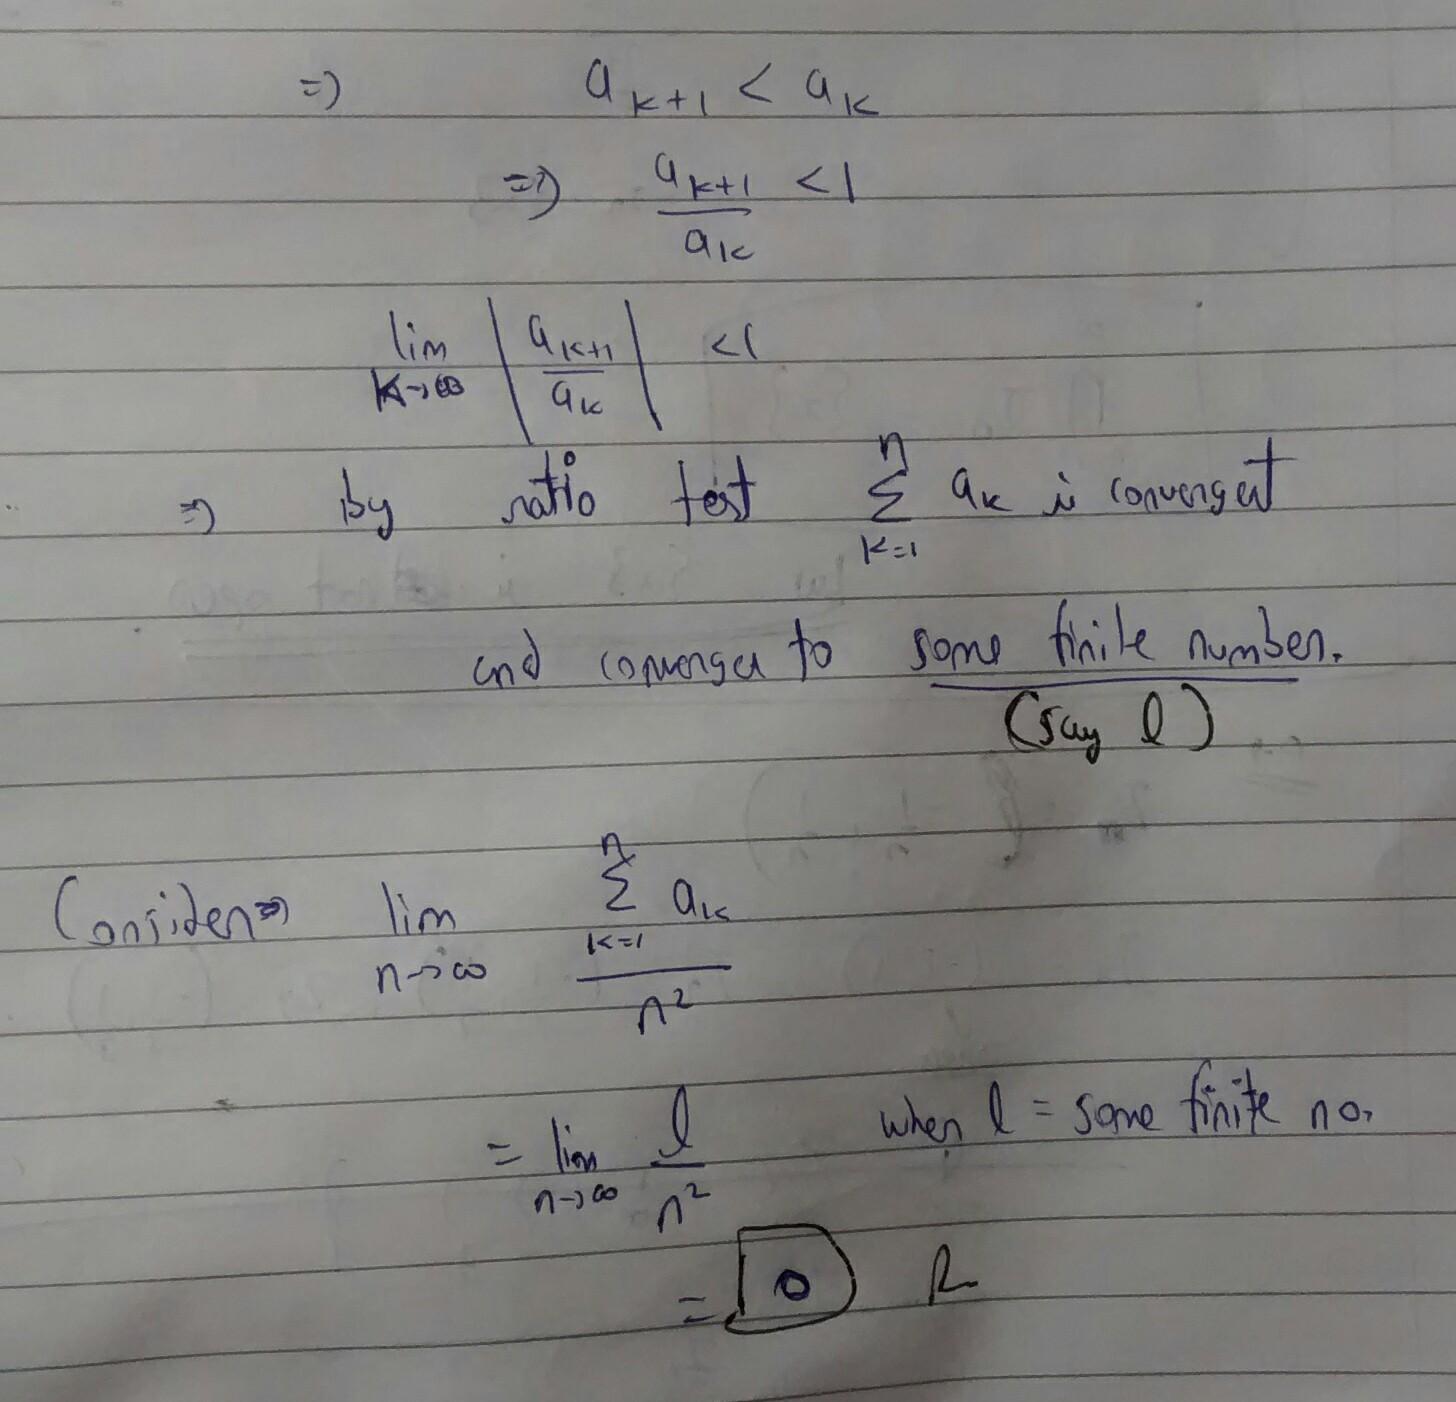 ⇒ a_{k+1} < a_k
⇒ a_{k+1}/a_k < 1
lim_{k→∞} |a_{k+1}/a_k| < 1
⇒ by ratio test ∑_{k=1}^{n} a_k is convergent
and converges to some finite number.
(say l)
Consider⇒ lim_{n→∞} (∑_{k=1}^{n} a_k)/n²
= lim_{n→∞} l/n² when l = some finite no.
= 0